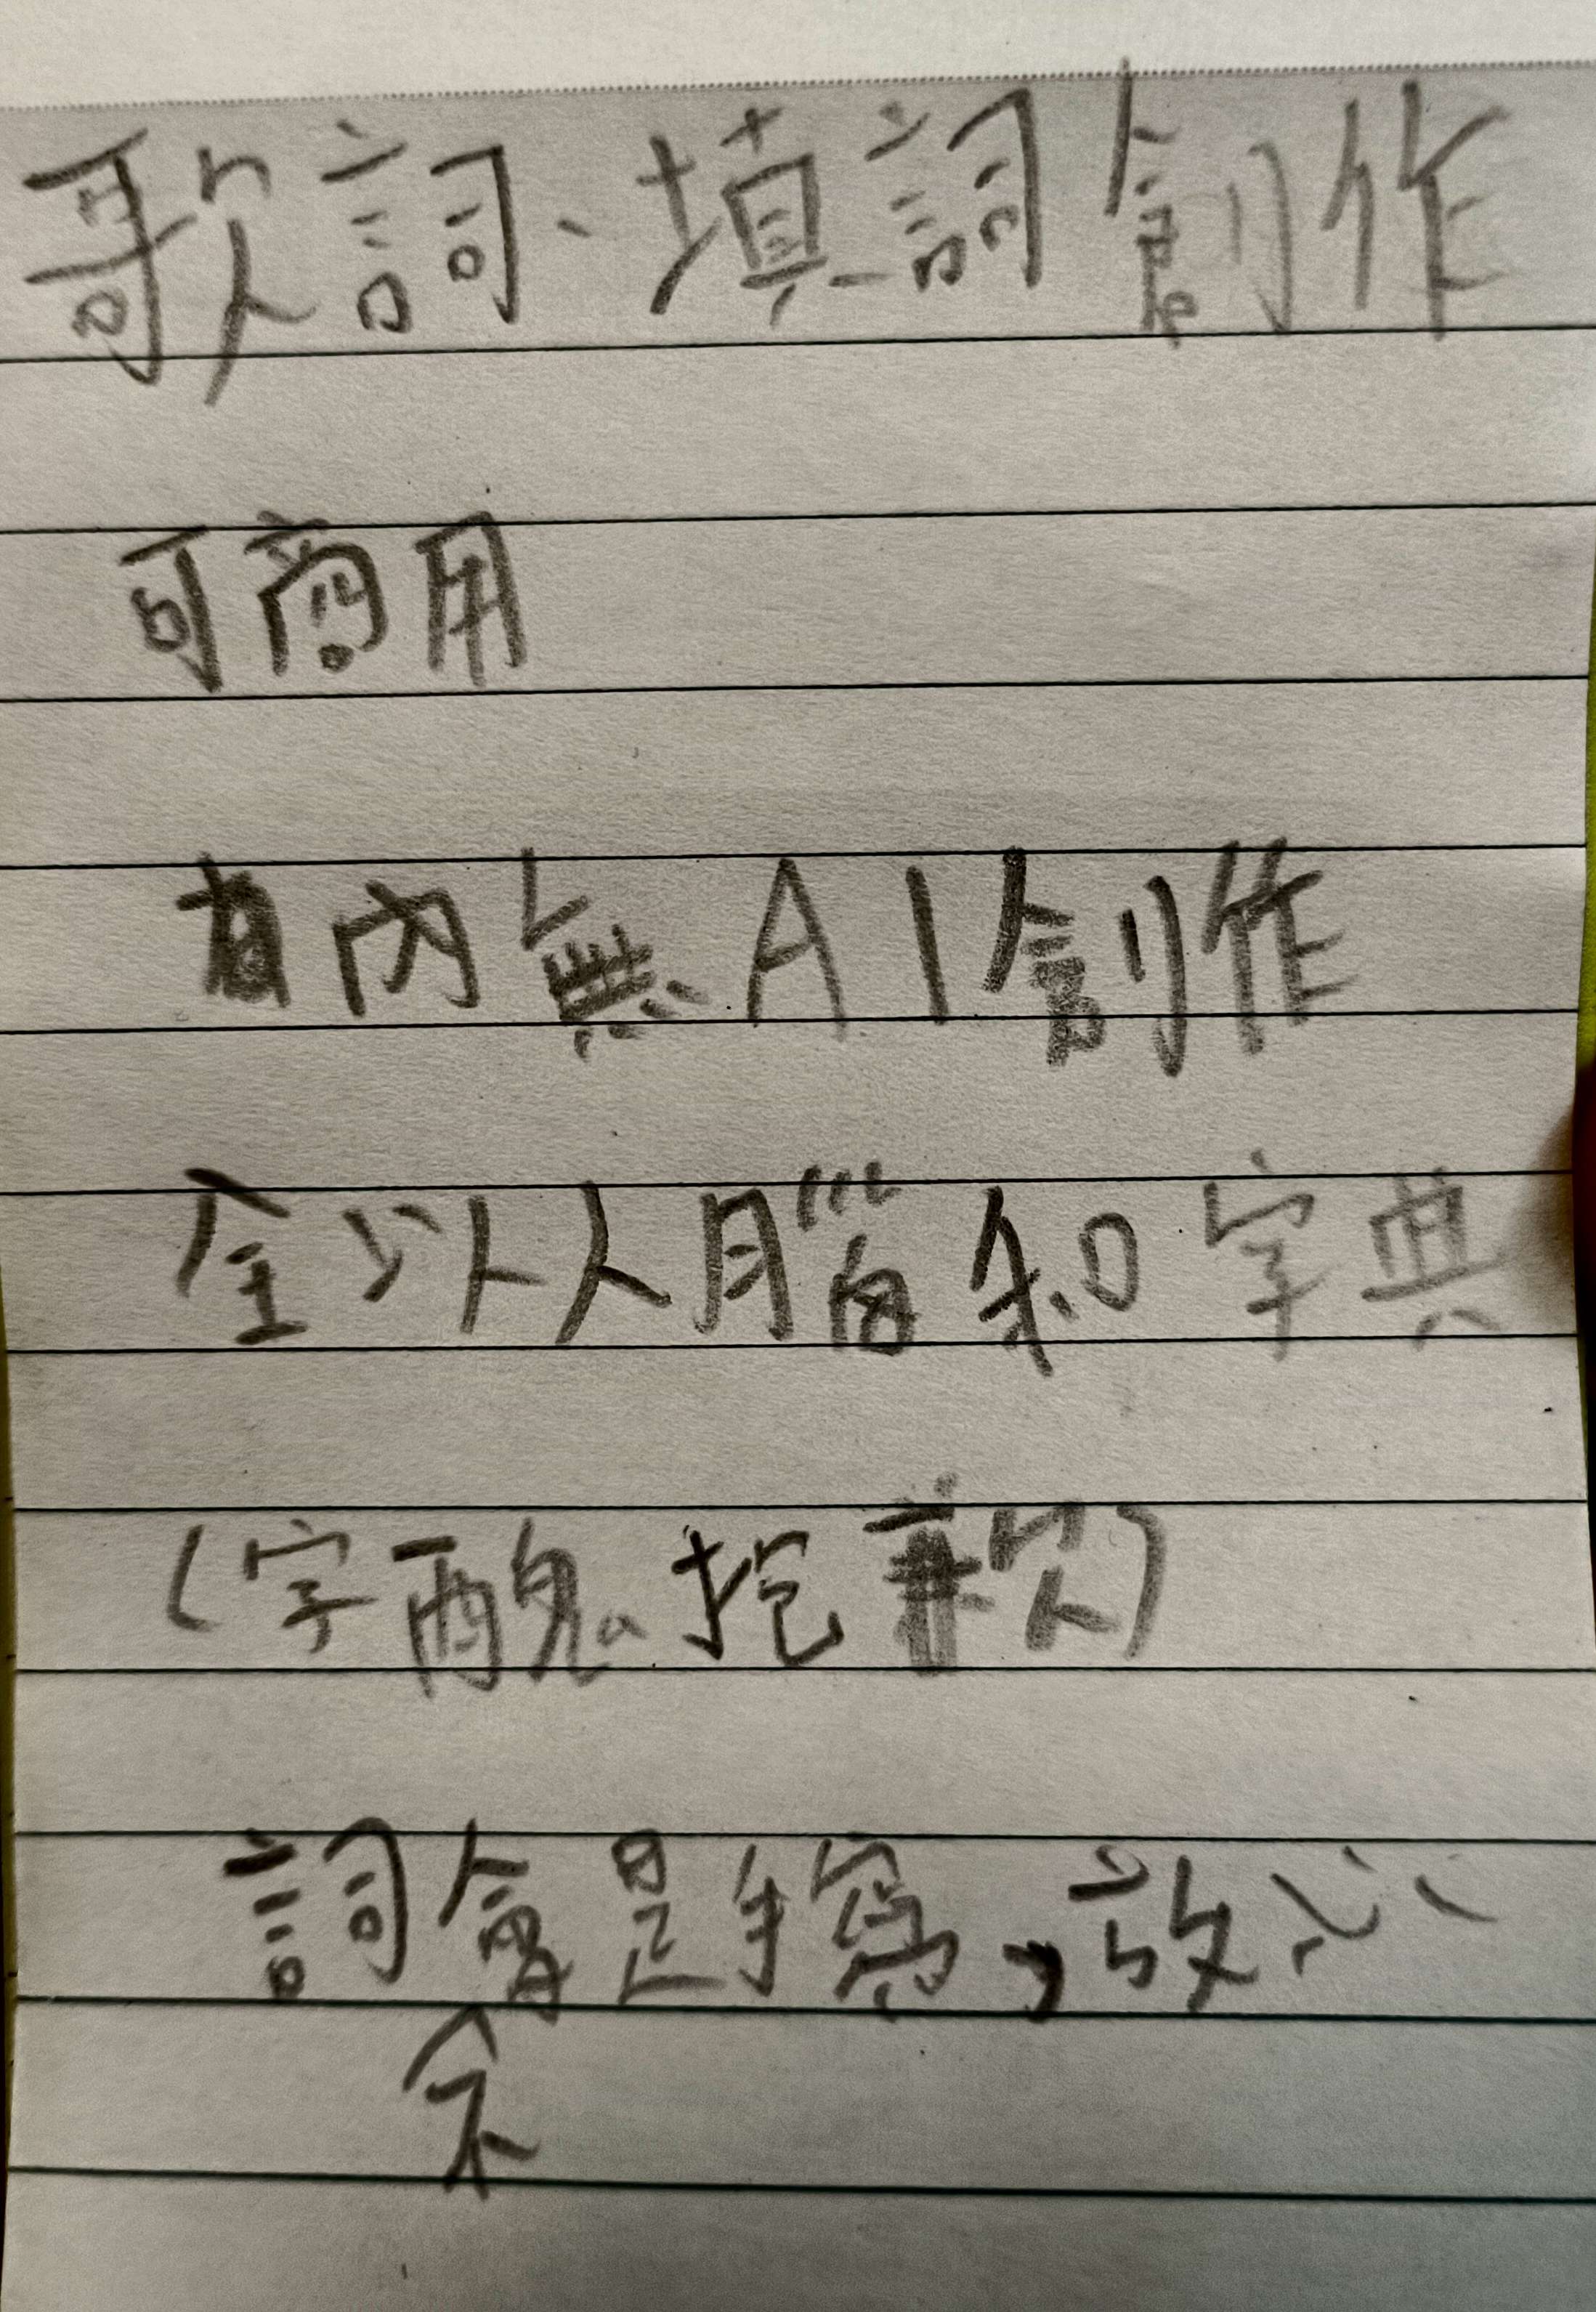 歌詞、填詞創作
可商用
內無AI創作
全以人腦和字典
(字醜抱歉)
詞會是手寫,放心